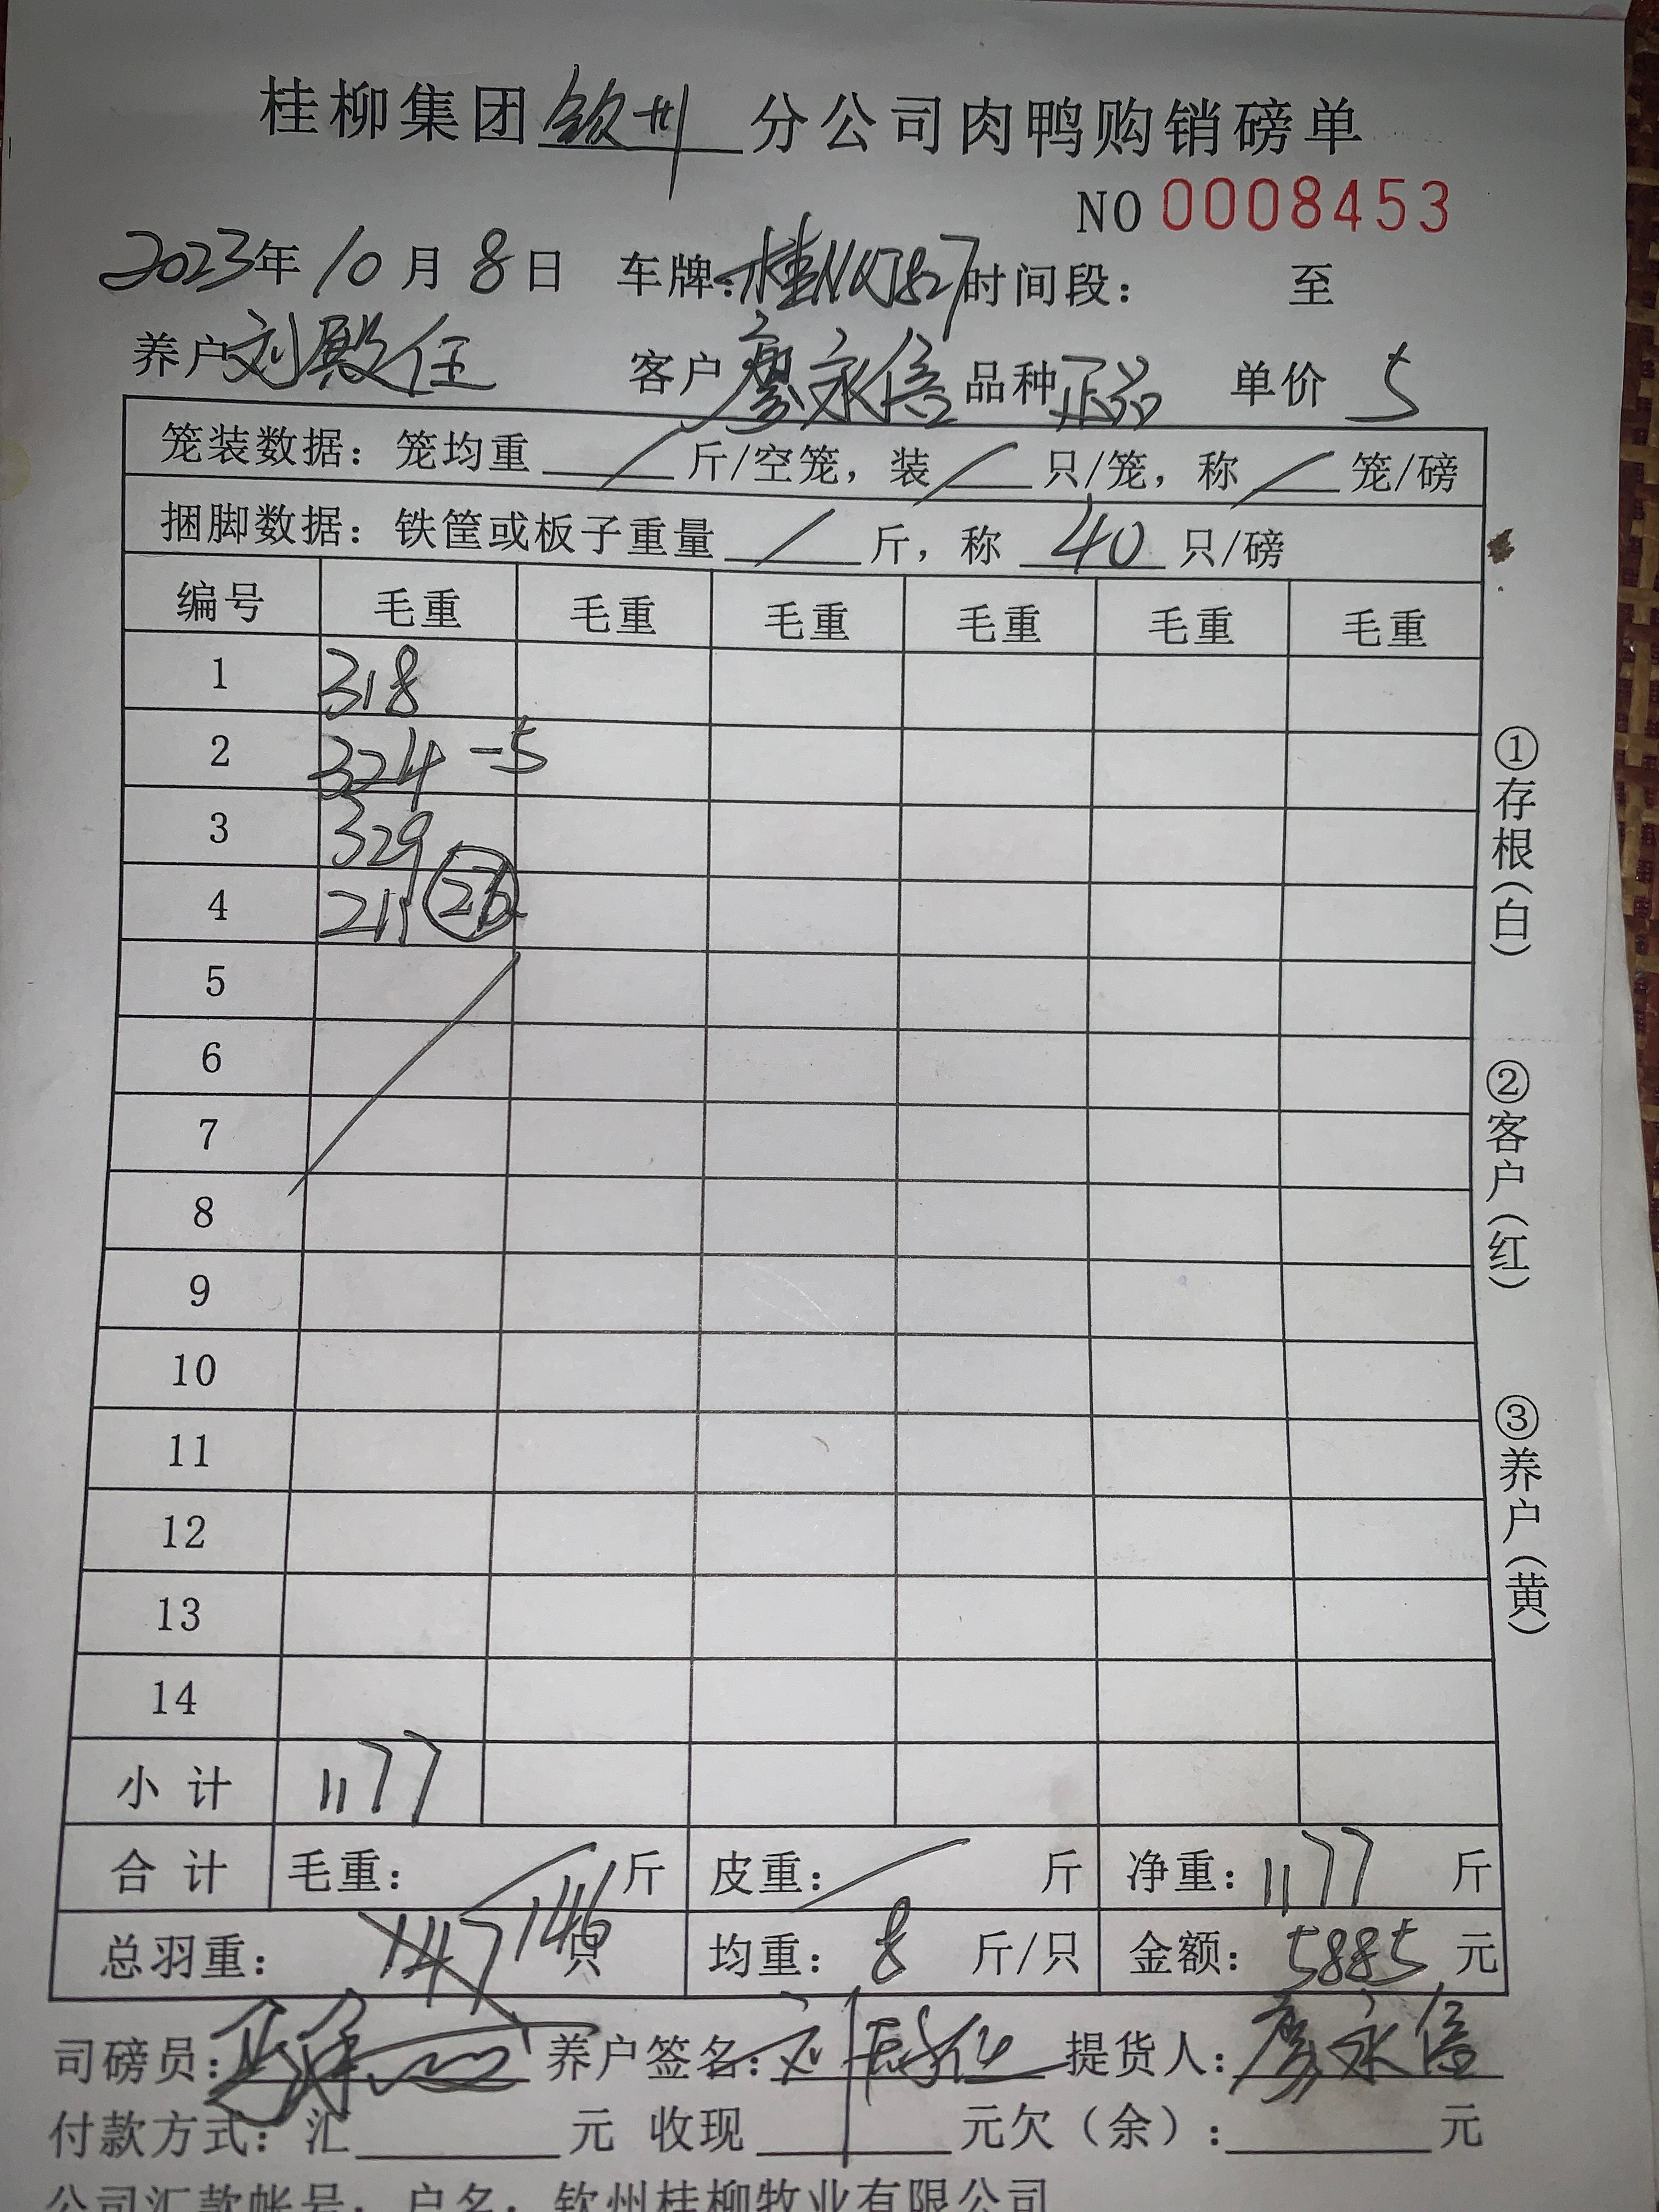 桂柳集团钦州分公司肉鸭购销磅单
NO 0008453
2023年10月8日 车牌:桂NQJ527时间段: 至
养户刘殿任 客户廖永信 品种正品 单价 5
笼装数据:笼均重 / 斤/空笼,装 / 只/笼,称 / 笼/磅
捆脚数据:铁筐或板子重量 / 斤,称 40 只/磅
编号 毛重 毛重 毛重 毛重 毛重 毛重
1 318
2 324 -5
3 329
4 211
5
6
7
8
9
10
11
12
13
14
小计 1177
合计 毛重: / 斤 皮重: / 斤 净重:1177 斤
总羽重: 147 146只 均重:8 斤/只 金额:5885元
司磅员: 养户签名:刘殿任 提货人:廖永信
付款方式:汇 元 收现 元欠(余): 元
公司汇款帐号:户名:钦州桂柳牧业有限公司
①存根(白)
②客户(红)
③养户(黄)